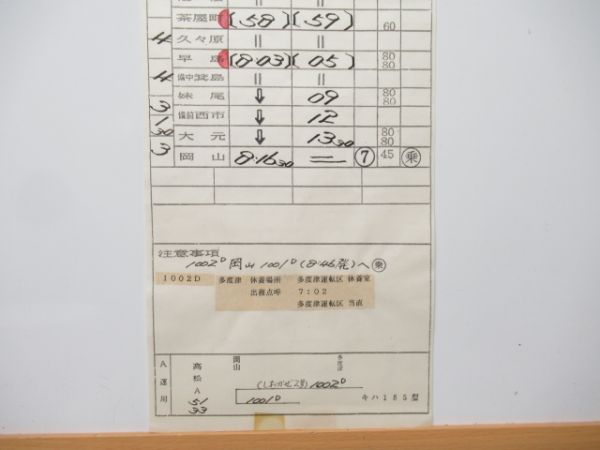 茶屋町 (58) (59) 60
4 久々原 || ||
早島 (8:03) (05) 80 80
4 備中箕島 || ||
妹尾 ↓ 09 80 80
3 備前西市 ↓ 12
1 30 大元 ↓ 13 30 80 80
3 岡山 8:16 30 = ⑦ 45 乗
注意事項
1002D 岡山 1001D (8:46発)へ 乗
1002D 多度津 休養場所 多度津運転区 休養室
出務点呼 7:02
多度津運転区 当直
高松A 51 33
岡山
多度津
(しおかぜ2号) 1002D
1001D
キハ185型